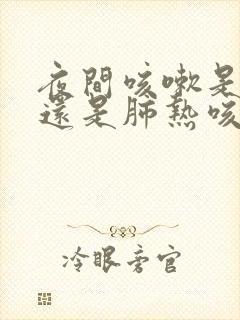 夜間咳嗽是
還是肺熱咳
冷眼旁官